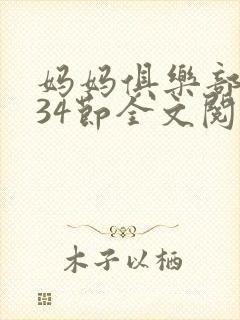 妈妈俱樂部
34節全文閱
木子以栖